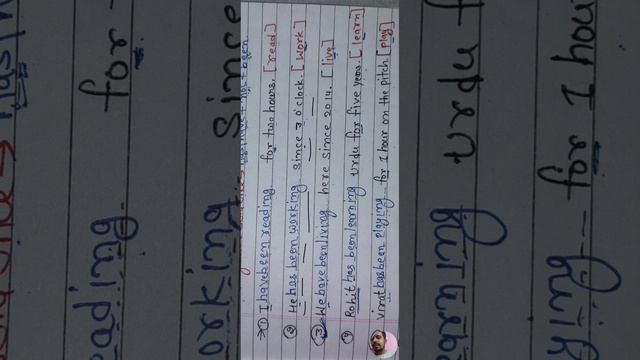 has/have + not + been
① I have been reading for two hours. [read]
② He has been working since 7 o'clock. [work]
③ We have been living here since 2014. [live]
④ Rohit has been learning urdu for five years. [learn]
virat has been playing for 1 hour on the pitch. [play]